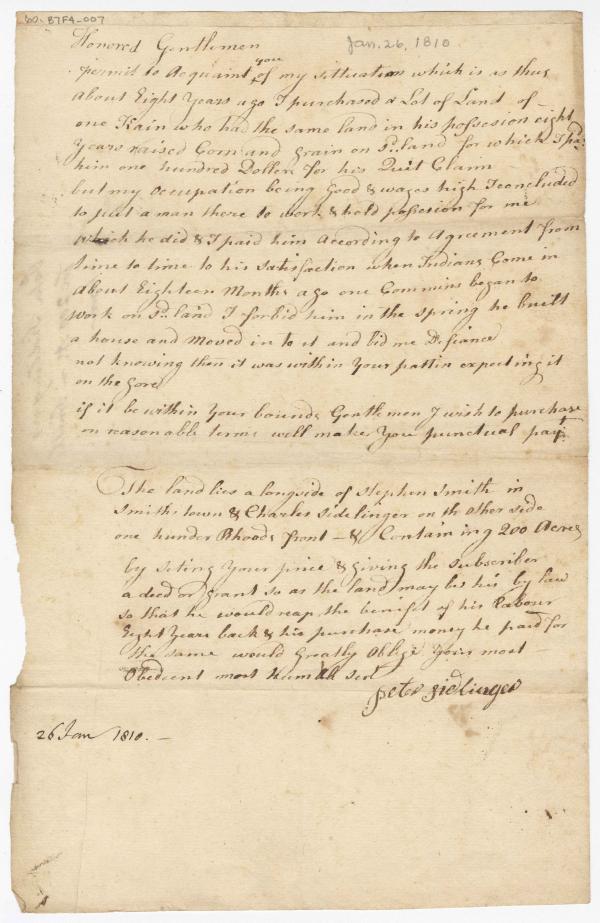 60. 87F4-007
Jan. 26, 1810
Honored Gentlemen
permit to Acquaint you of my sittuation which is as thus
About Eight Years ago I purchased a Lot of Land of
one Kain who had the same land in his possesion eight
Years raised Corn and grain on sd. land for which I pd.
him one hundred Dollers for his Quit Claim
but my Occupation being Good & wages high I concluded
to put a man there to work & hold possesion for me
which he did & I paid him According to Agreement from
time to time to his satisfaction when Indians Come in
About Eighteen Months ago one Commins began to
work on sd. land I forbid him in the spring he built
a house and Moved in to it and bid me Defiance
not knowing then it was with in Your pattin expecting it
on the gore
if it be within Your bounds Gentlemen I wish to purchase
on reasonable terms will make You punctual payt.
The land lies a longside of Stephen Smith in
Smiths town & Charles Sidelinger on th other side
one hunder Rhoods front - & Containing 200 Acres
by seting Your price & giving the subscriber
a deed or grant so as the land may be his by law
so that he would reap the benefit of his Labour
Eight Years back & his purchase money he paid for
the same would Greatly Oblige Your most
Obedient most humbl sert
Peter Sidlinger
26 Jan 1810. -